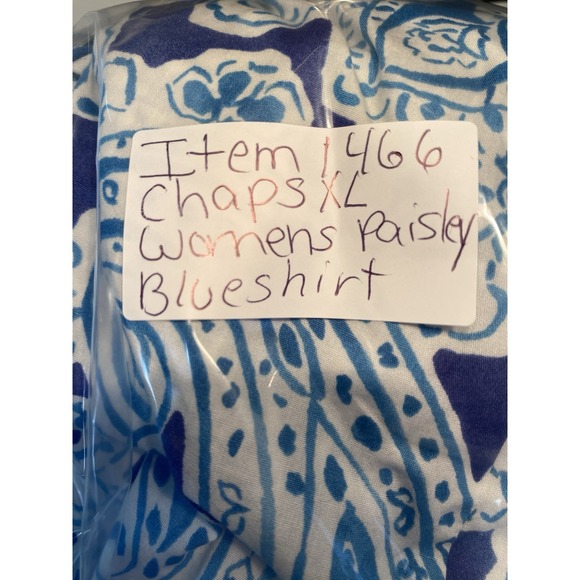 Item 1466
Chaps XL
Womens Paisley
Blueshirt